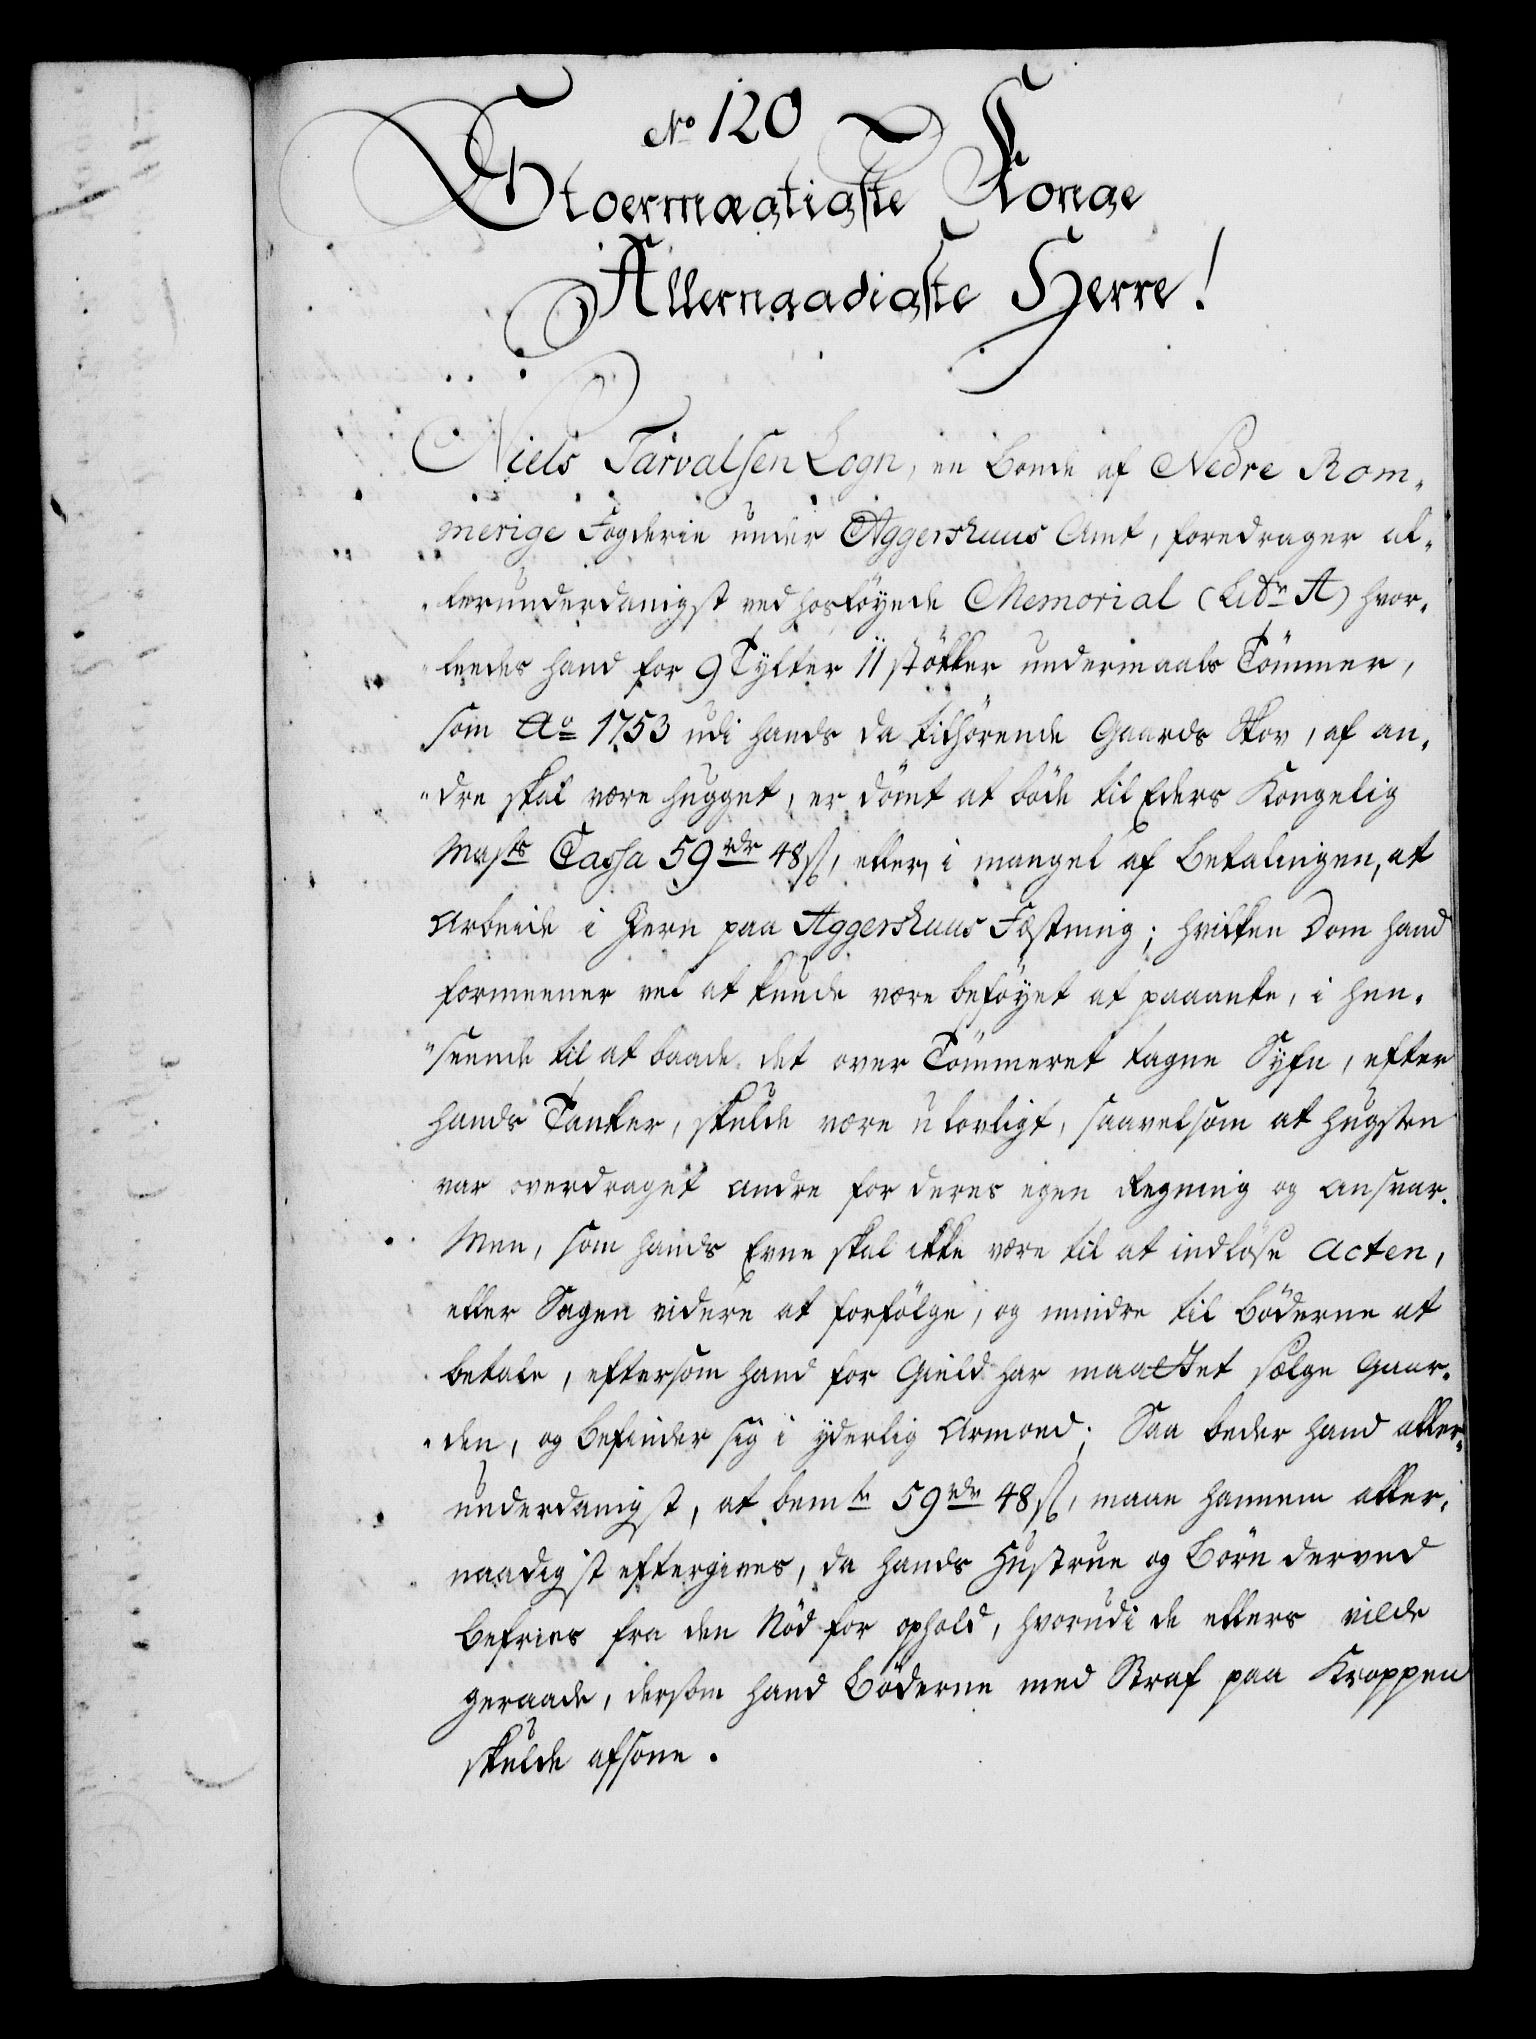 No 120
Stoermægtigste Konge
Allernaadigste Herre!
Niels Tarvalsen Logn, en Bonde af Nedre Rom-
merige Fogderie under Aggershuus Amt, foredrager al-
lerunderdanigst ved hosföyede Memorial (Litr A) hvor-
ledes hand for 9 Tylter 11 støkker undermaals Tömmer,
som Ao 1753 udi hands da tilhörende Gaards Skov, af an-
dre skal være hugget, er dömt at böde til Eders Kongelig
Majts Cassa 59 rdr 48 ß, eller, i mangel af Betalingen, at
Arbeide i Jern paa Aggershuus Fæstning; hvilken Dom hand
formeener vel at kunde være beföyet at paaanke, i hen-
seende til at baade det over Tömmeret tagne Syfn, efter
hands Tanker, skulde være ulovligt, saavelsom at hugsten
var overdraget andre for deres egen Regning og ansvar.
Men, som hands Evne skal ikke være til at indlöse Acten,
eller Sagen videre at forfölge, og mindre til Böderne at
betale, eftersom hand for Gield har maattet sælge Gaar-
den, og befinder sig i yderlig Armoed; Saa beder hand aller-
underdanigst, at bemte 59 rdr 48 ß, maae hannem aller-
naadigst eftergives, da hands Hustrue og Börn derved
befries fra den Nöd for ophold, hvorudi de ellers vilde
geraade, dersom hand Böderne med Straf paa Kroppen
skulde afsone.